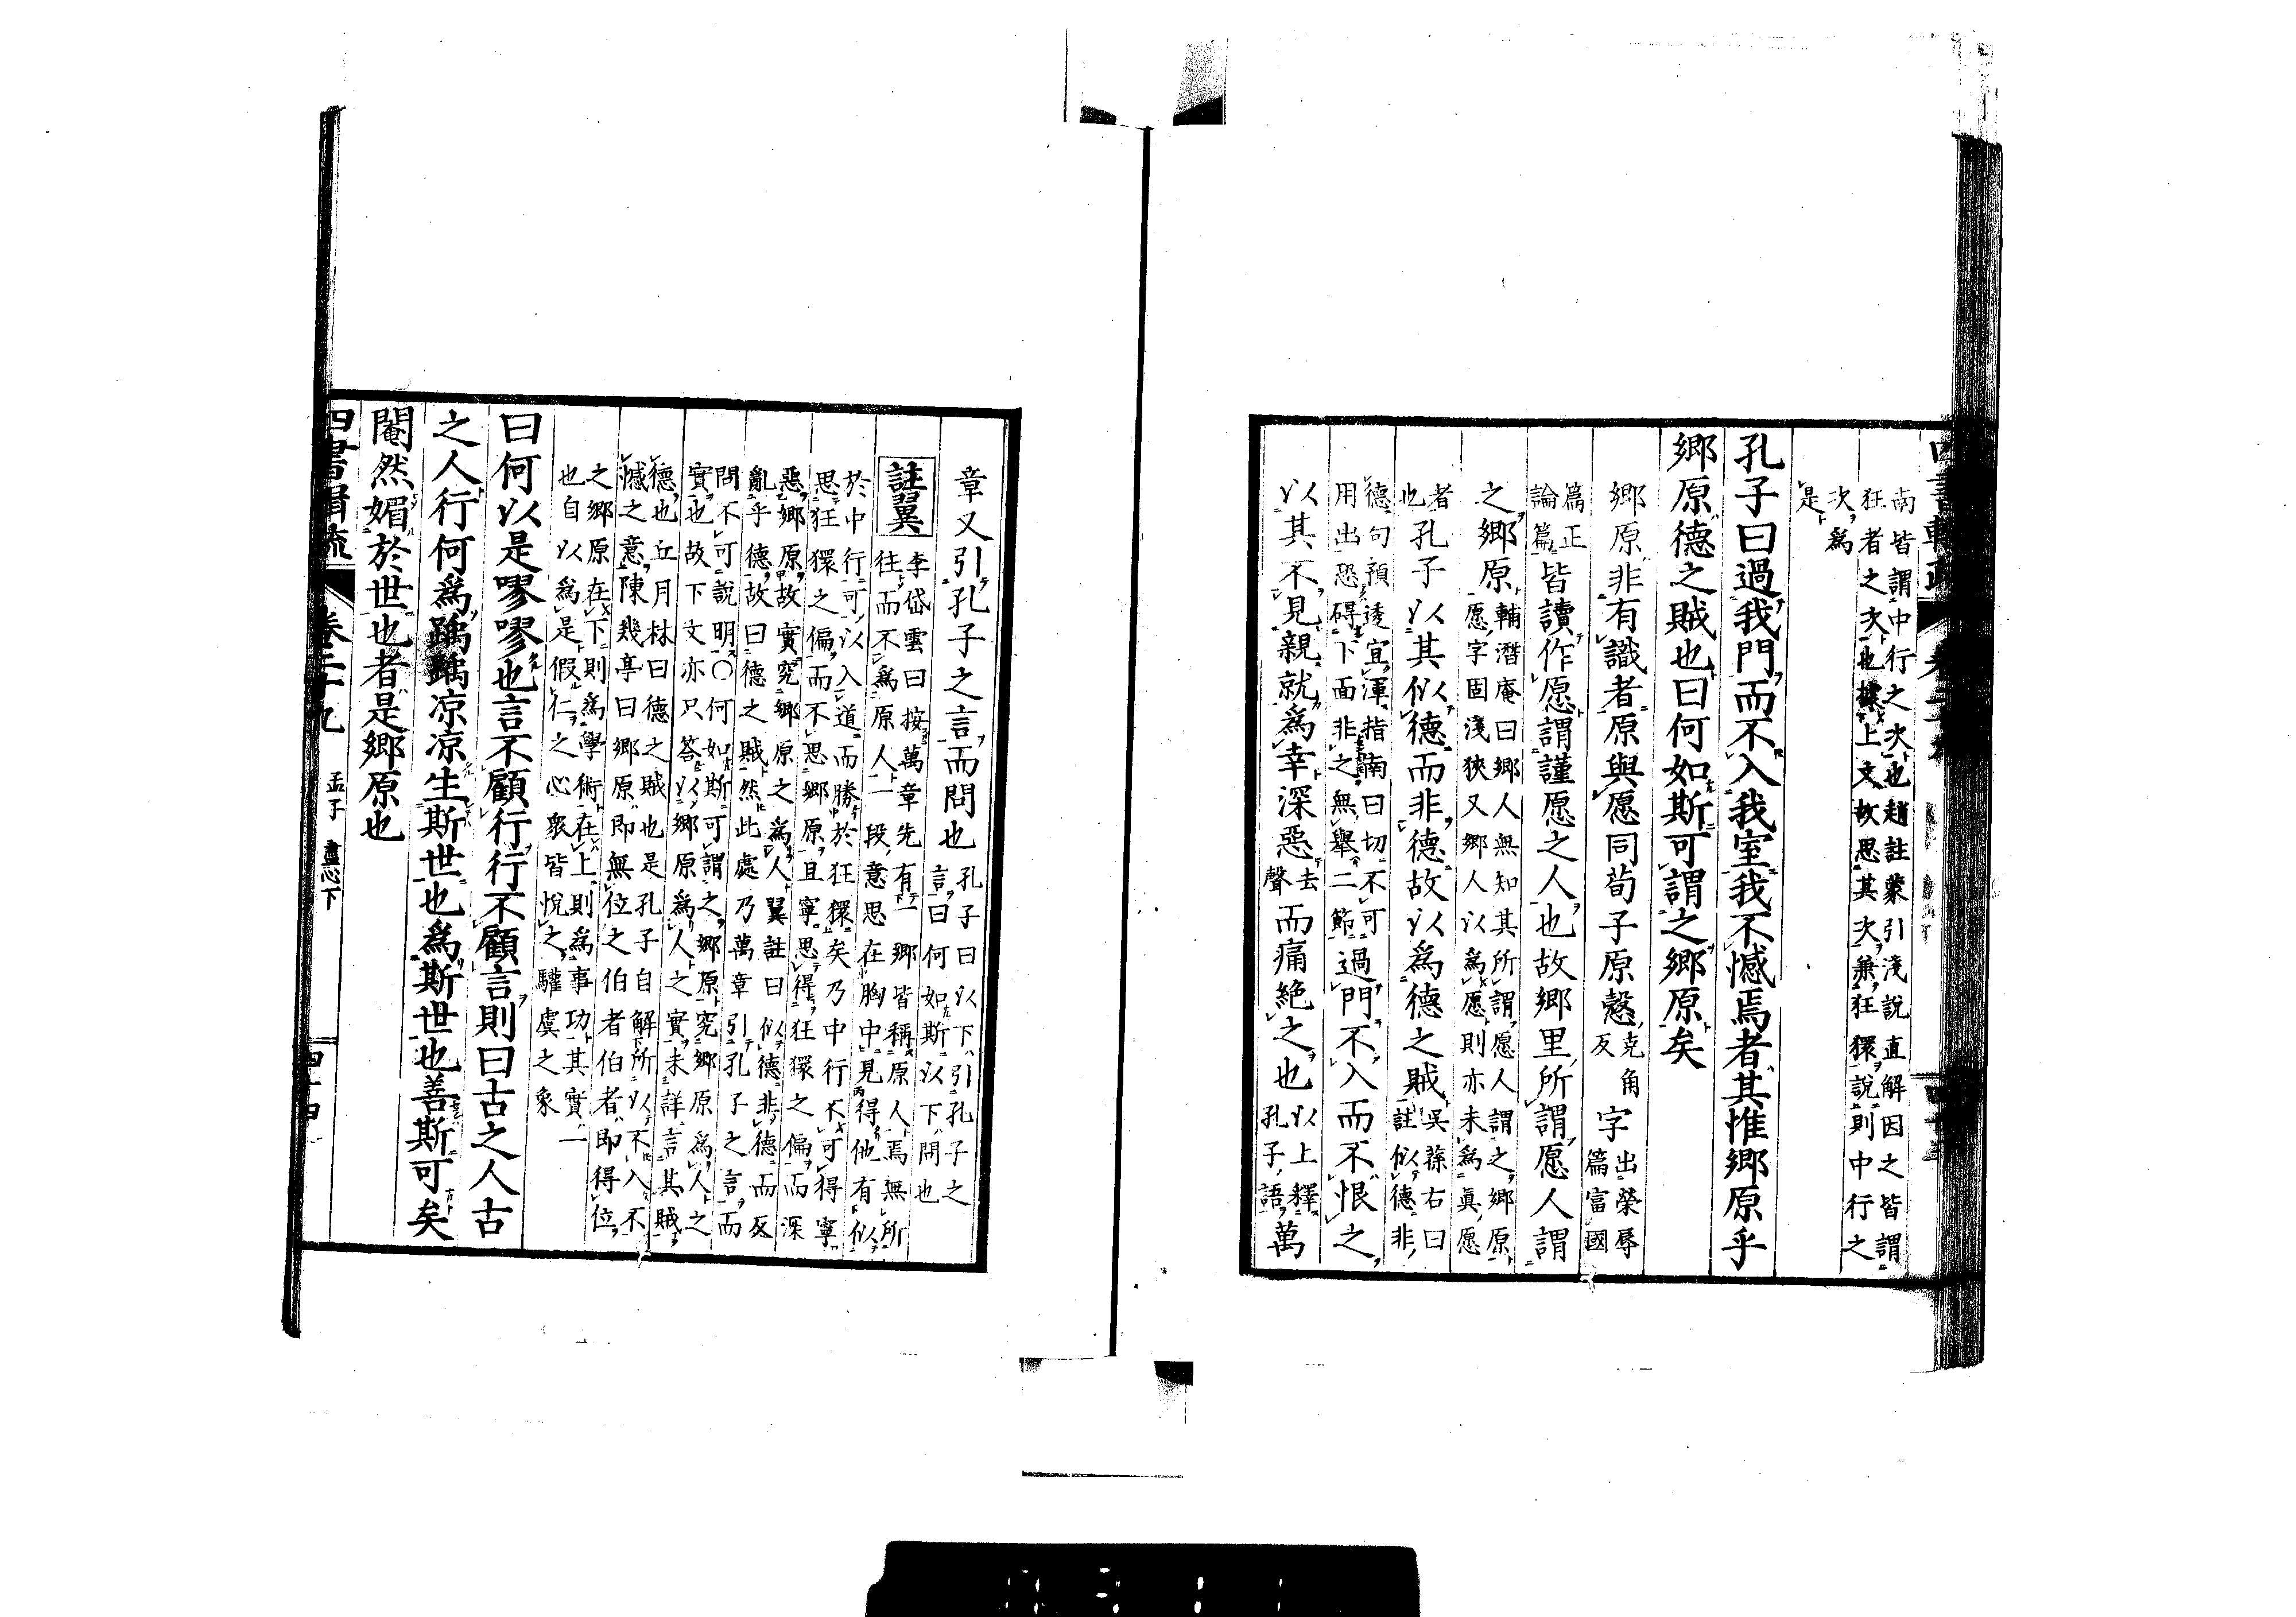 南皆謂中行之次也趙註蒙引淺說直解因之皆謂
狂者之次也據上文故思其次兼狂獧說則中行之
次爲
是
孔子曰過我門而不入我室我不憾焉者其惟鄉原乎
鄉原德之賊也曰何如斯可謂之鄉原矣
鄉原非有識者原與愿同荀子原愨克角反字出榮辱篇富國
篇正論篇皆讀作愿謂謹愿之人也故鄉里所謂愿人謂
之鄉原輔潛庵曰鄉人無知其所謂愿人謂之鄉原愿字固淺狹又鄉人以爲愿則亦未爲眞愿
者也孔子以其似德而非德故以爲德之賊吳蓀右曰註似德非
德句預透宜渾指南曰切不可用出恐碍下面非之無舉二節過門不入而不恨之
以其不見親就爲幸深惡去聲而痛絕之也以上釋孔子語萬
章又引孔子之言而問也孔子曰以下引孔子之言曰何如斯以下問也
註翼
李岱雲曰按萬章先有一鄉皆稱原人焉無所
往而不爲原人一段意思在胸中見得他有似
於中行可以入道而勝於狂獧矣乃中行不可得寧
思狂獧之偏而不思鄉原且寧思得狂獧之偏而深
惡鄉原故實究鄉原之爲人翼註曰似德非德而反
亂乎德故曰德之賊然此處乃萬章引孔子之言而
問不可說明〇何如斯可謂之鄉原究鄉原爲人之
實也故下文亦只答以鄉原爲人之實未詳言其賊
德也丘月林曰德之賊也是孔子自解所以不入不
憾之意陳幾亭曰鄉原即無位之伯者伯者即得位
之鄉原在下則爲學術在上則爲事功其實一
也自以爲是假仁之心衆皆悅之驩虞之象
曰何以是嘐嘐也言不顧行行不顧言則曰古之人古
之人行何爲踽踽凉凉生斯世也爲斯世也善斯可矣
閹然媚於世也者是鄉原也
卷三十九 孟子 盡心下 四十四